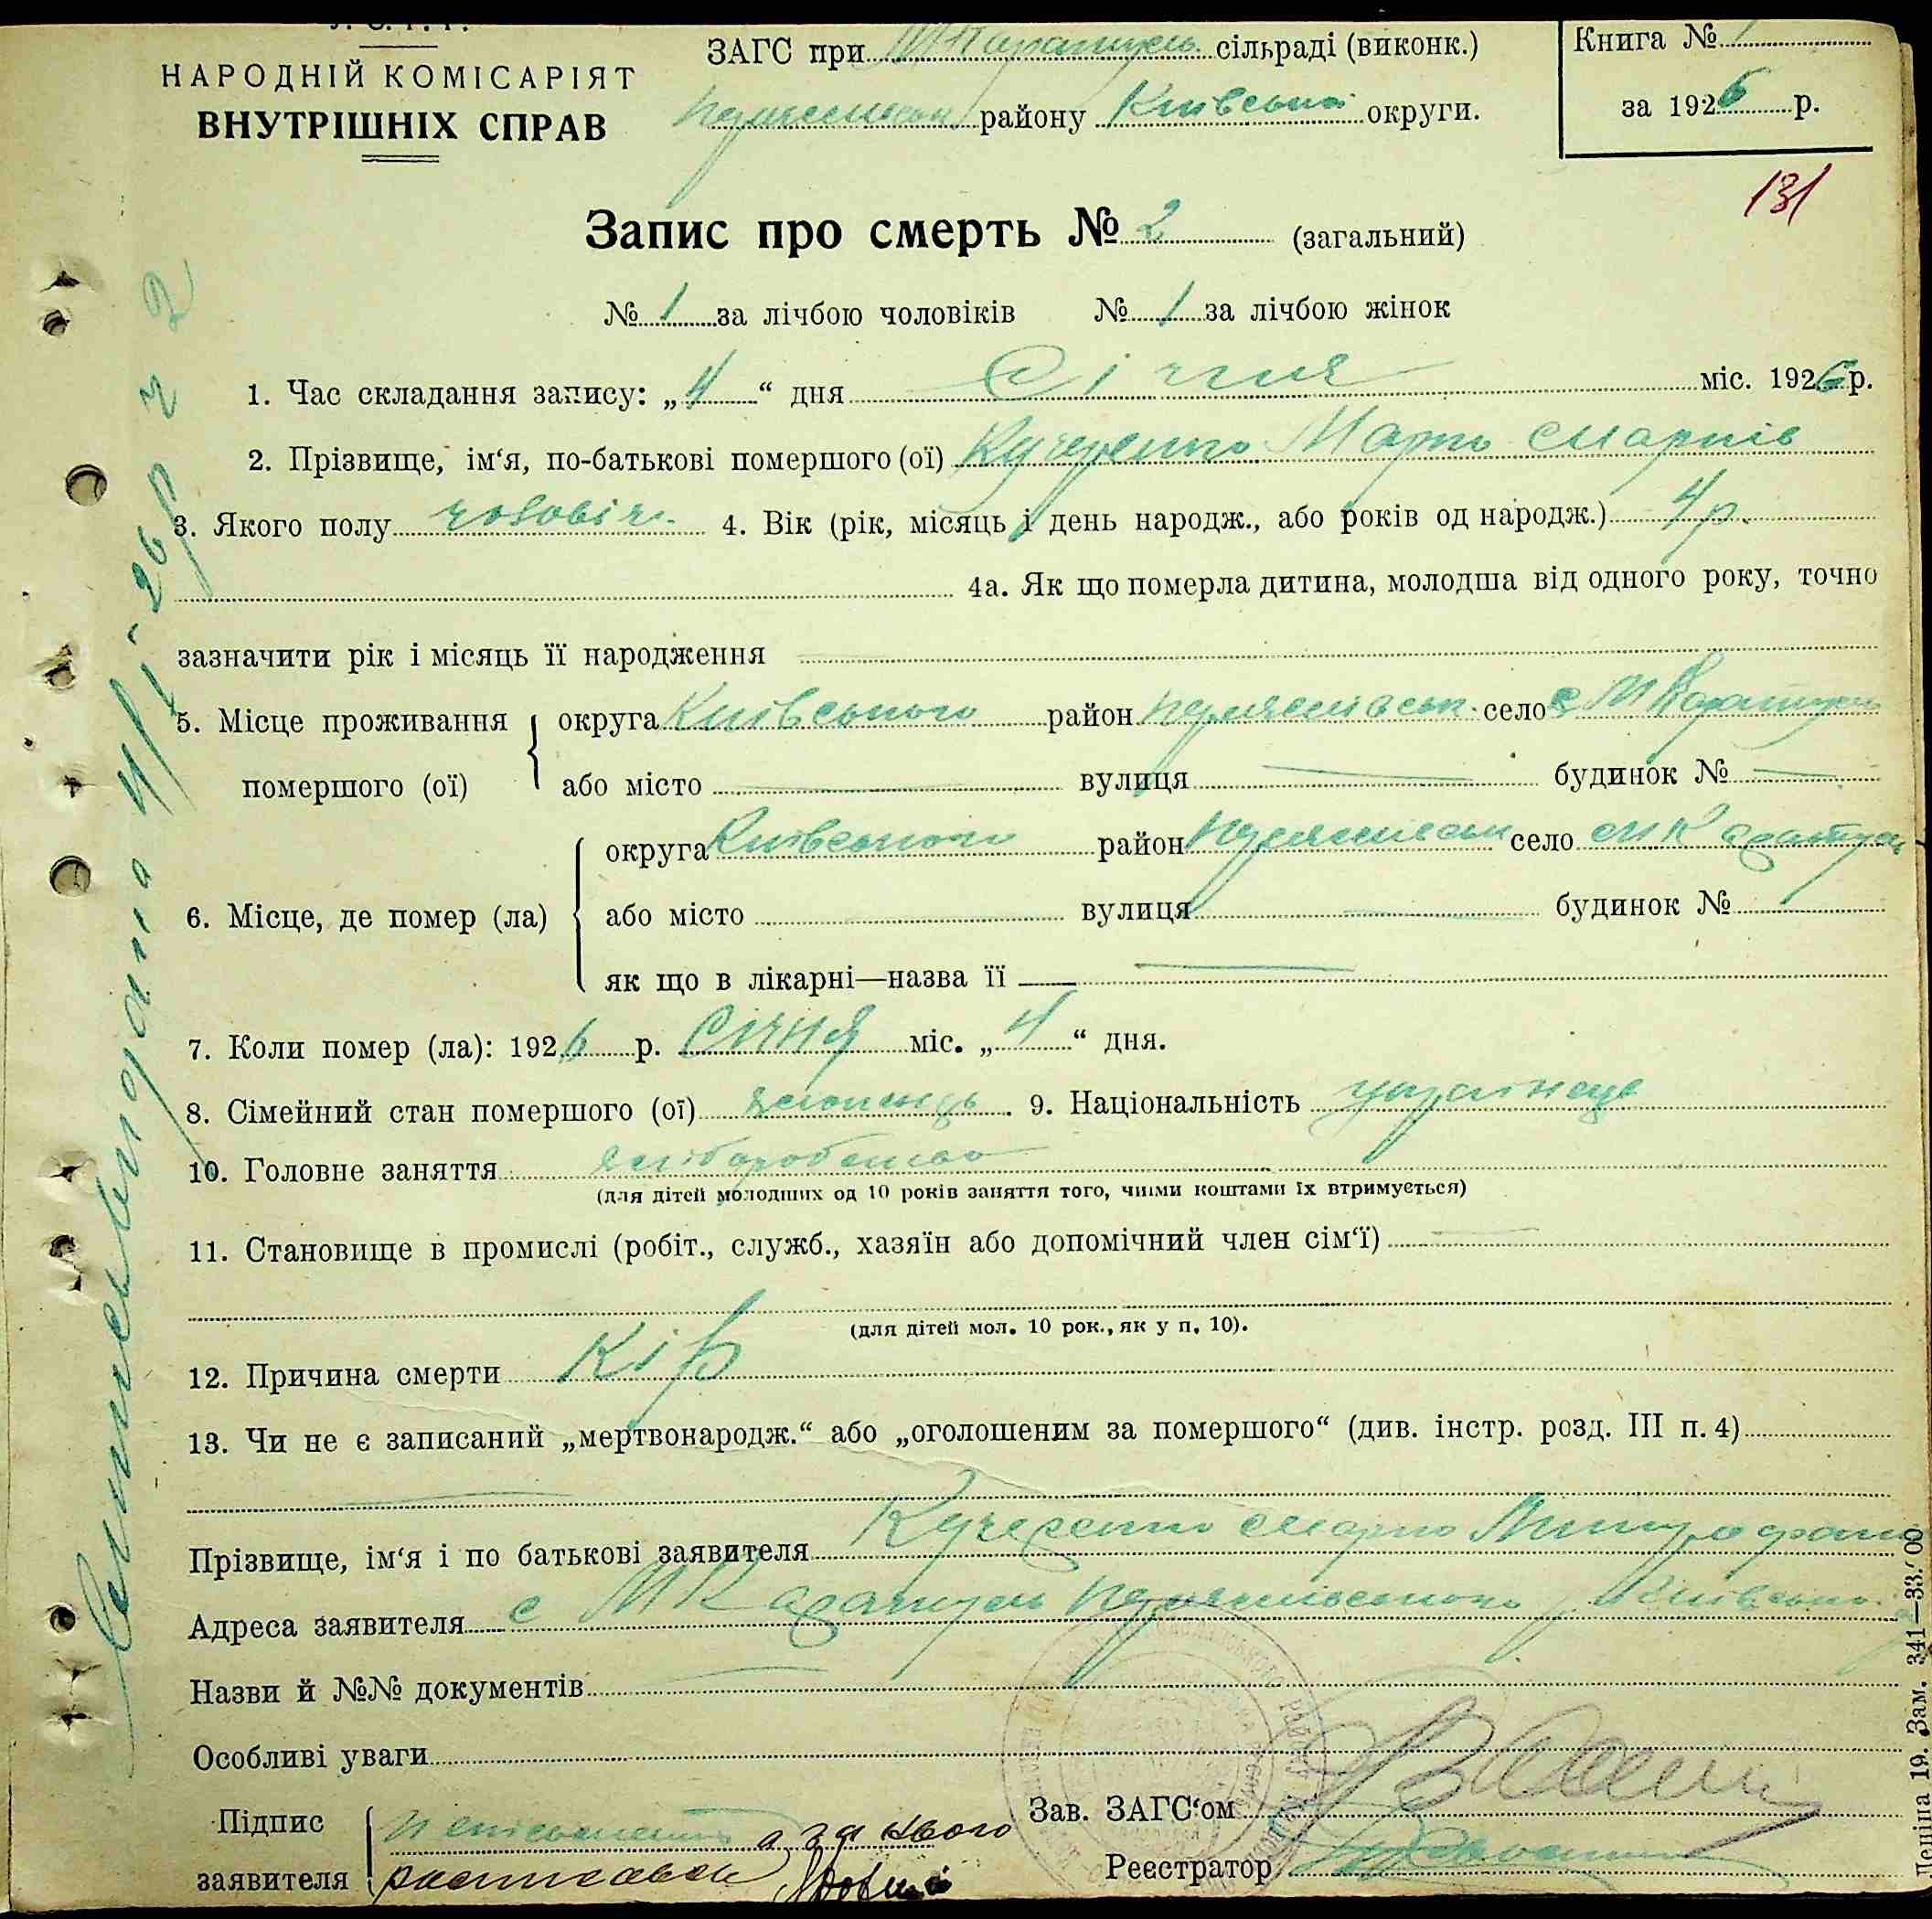 НАРОДНІЙ КОМІСАРІЯТ
ВНУТРІШНІХ СПРАВ
ЗАГС при М Каратуль сільраді (виконк.)
району Київської округи.
Книга № 1
за 1926 р.
131
Запис про смерть № 2 (загальний)
№ 1 за лічбою чоловіків № 1 за лічбою жінок
1. Час складання запису: „4“ дня Січня міс. 1926 р.
2. Прізвище, ім‘я, по-батькові помершого (ої) Кучеренко Марко
3. Якого полу чоловіч. 4. Вік (рік, місяць і день народж., або років од народж.) 4 р.
4а. Як що померла дитина, молодша від одного року, точно
зазначити рік і місяць її народження
5. Місце проживання помершого (ої) округа Київського район село с М Каратуль
або місто вулиця будинок №
6. Місце, де помер (ла) округа Київського район село М Каратуль
або місто вулиця будинок №
як що в лікарні—назва її
7. Коли помер (ла): 1926 р. Січня міс. „4“ дня.
8. Сімейний стан помершого (ої) хлопець. 9. Національність українець
10. Головне заняття хліборобство
(для дітей молодших од 10 років заняття того, чиїми коштами їх втримується)
11. Становище в промислі (робіт., служб., хазяїн або допомічний член сім‘ї)
(для дітей мол. 10 рок., як у п. 10).
12. Причина смерти Кір
13. Чи не є записаний „мертвонародж.“ або „оголошеним за помершого“ (див. інстр. розд. III п. 4)
Прізвище, ім‘я і по батькові заявителя Кучеренко
Адреса заявителя с М Каратуль
Назви й №№ документів
Особливі уваги
Підпис заявителя а за його
Зав. ЗАГС‘ом
Реєстратор